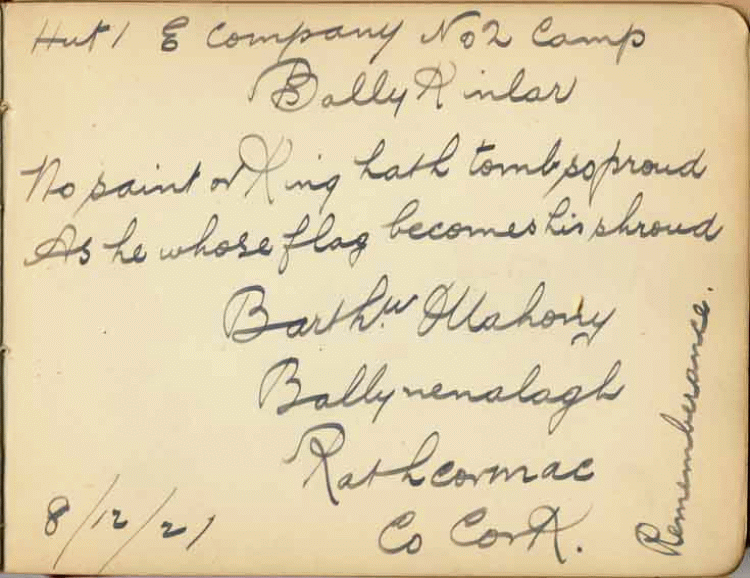 Hut 1 E Company No 2 Camp
BallyKinlar
No saint or King hath tomb so proud
As he whose flag becomes his shroud
Barthw OMahony
Ballynenalagh
Rathcormac
Co Cork.
8/12/21
Rememberance.